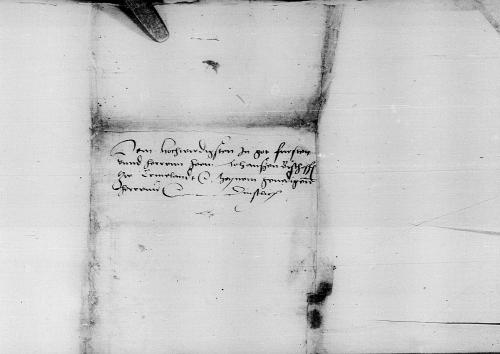 Dem hochwirdigsten In got fursten
vnnd herrenn hern Johansen Bischoff
tzw Ermelandt meynem gnedigen
herrenn